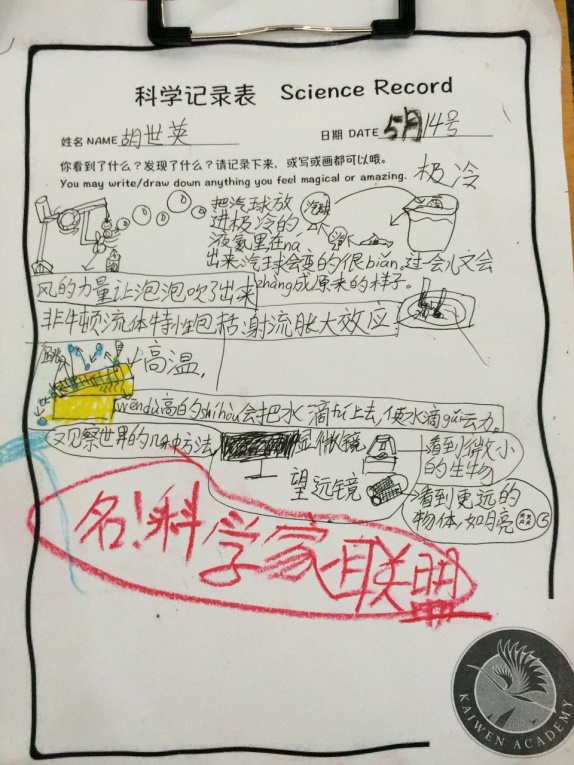 科学记录表 Science Record
姓名 NAME 胡世英 日期 DATE 5月14号
你看到了什么？发现了什么？请记录下来，或写或画都可以哦。
You may write/draw down anything you feel magical or amazing.
极冷
把汽球放
汽球
进极冷的
液氨里在ná
出来汽球会变的很biǎn。过一会儿又会
zhǎng成原来的样子。
风的力量让泡泡吹了出来
非牛顿流体特性包括:射流胀大效应
高温,
wēndù高的shíhòu会把水滴tuī上去,使水滴gǔn动。
观察世界的几种方法
显微镜
看到微小
的生物
望远镜
看到更远的
物体,如月亮
名!科学家联盟
KAIWEN ACADEMY